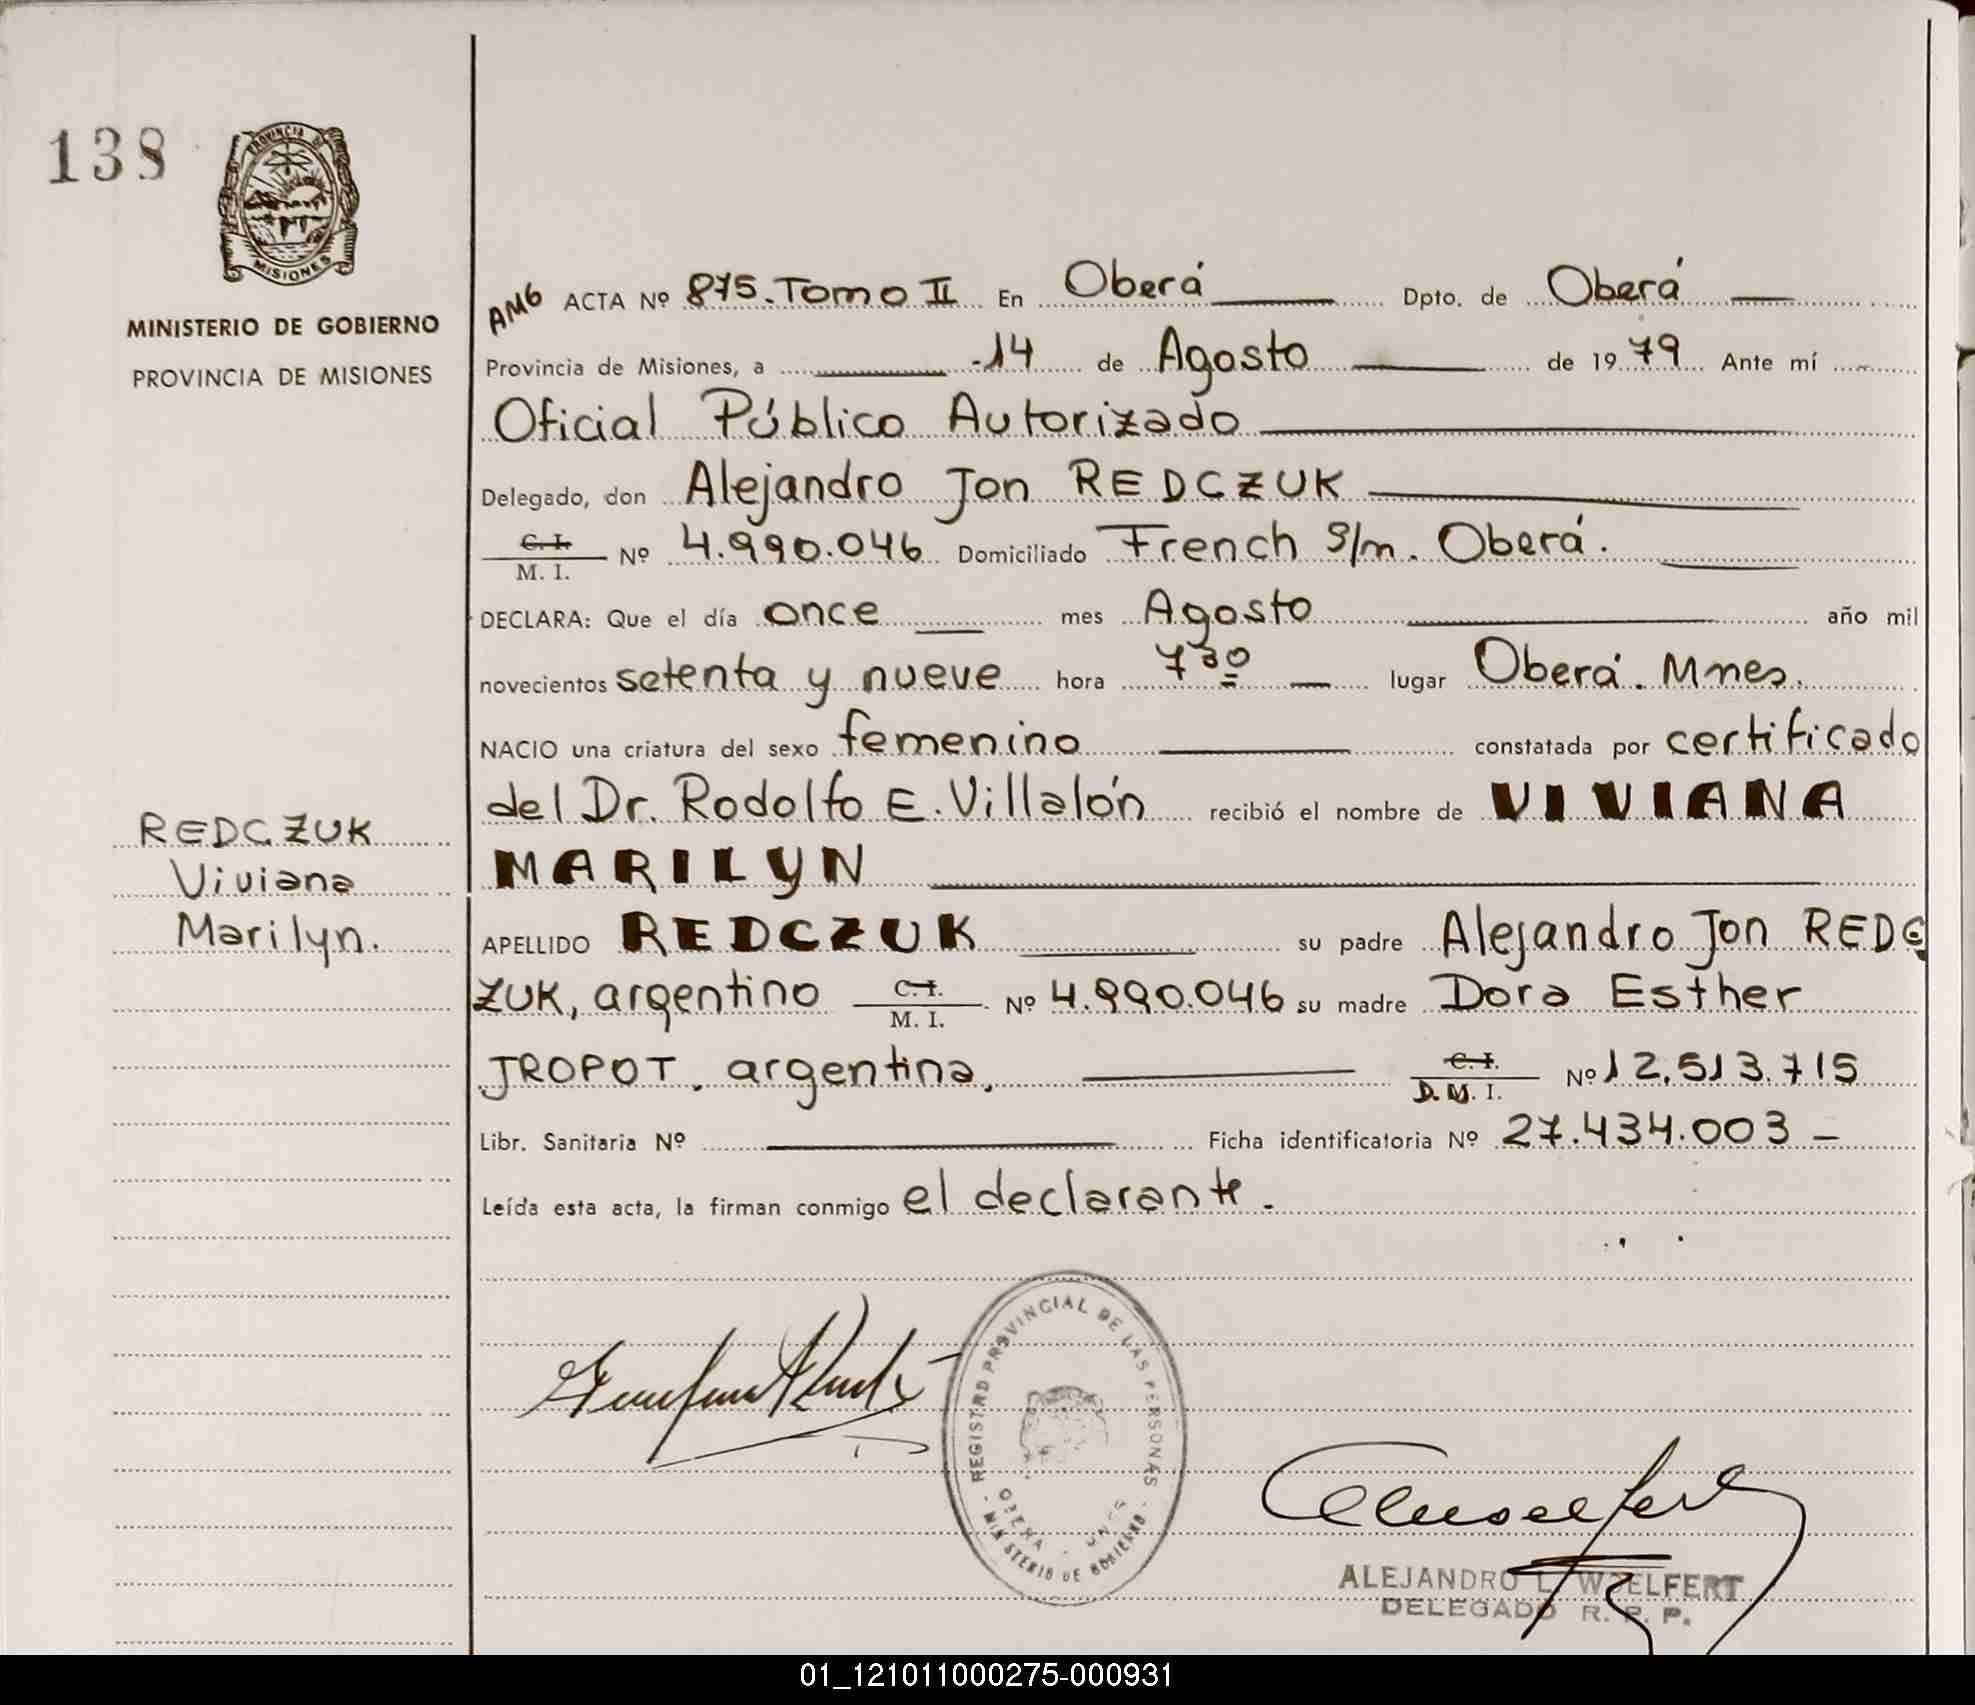 138
PROVINCIA DE
MISIONES
MINISTERIO DE GOBIERNO
PROVINCIA DE MISIONES
AMG ACTA Nº 875. Tomo II En Oberá Dpto. de Oberá
Provincia de Misiones, a -14 de Agosto de 1979 Ante mí
Oficial Público Autorizado
Delegado, don Alejandro Jon REDCZUK
C. I. / M. I. Nº 4.990.046 Domiciliado French s/n. Oberá.
DECLARA: Que el día once mes Agosto año mil
novecientos setenta y nueve hora 7 30 lugar Oberá. Mnes.
NACIO una criatura del sexo femenino constatada por certificado
del Dr. Rodolfo E. Villalón recibió el nombre de VIVIANA
MARILYN
REDCZUK
Viviana
Marilyn.
APELLIDO REDCZUK su padre Alejandro Jon REDC
ZUK, argentino C. I. / M. I. Nº 4.990.046 su madre Dora Esther
JROPOT, argentina, C. I. / D. M. I. Nº 12.513.715
Libr. Sanitaria Nº Ficha identificatoria Nº 27.434.003 –
Leída esta acta, la firman conmigo el declarante.
REGISTRO PROVINCIAL DE LAS PERSONAS
OBERA - MNES
MINISTERIO DE GOBIERNO
ALEJANDRO L. WOELFERT
DELEGADO R. P. P.
01_121011000275-000931